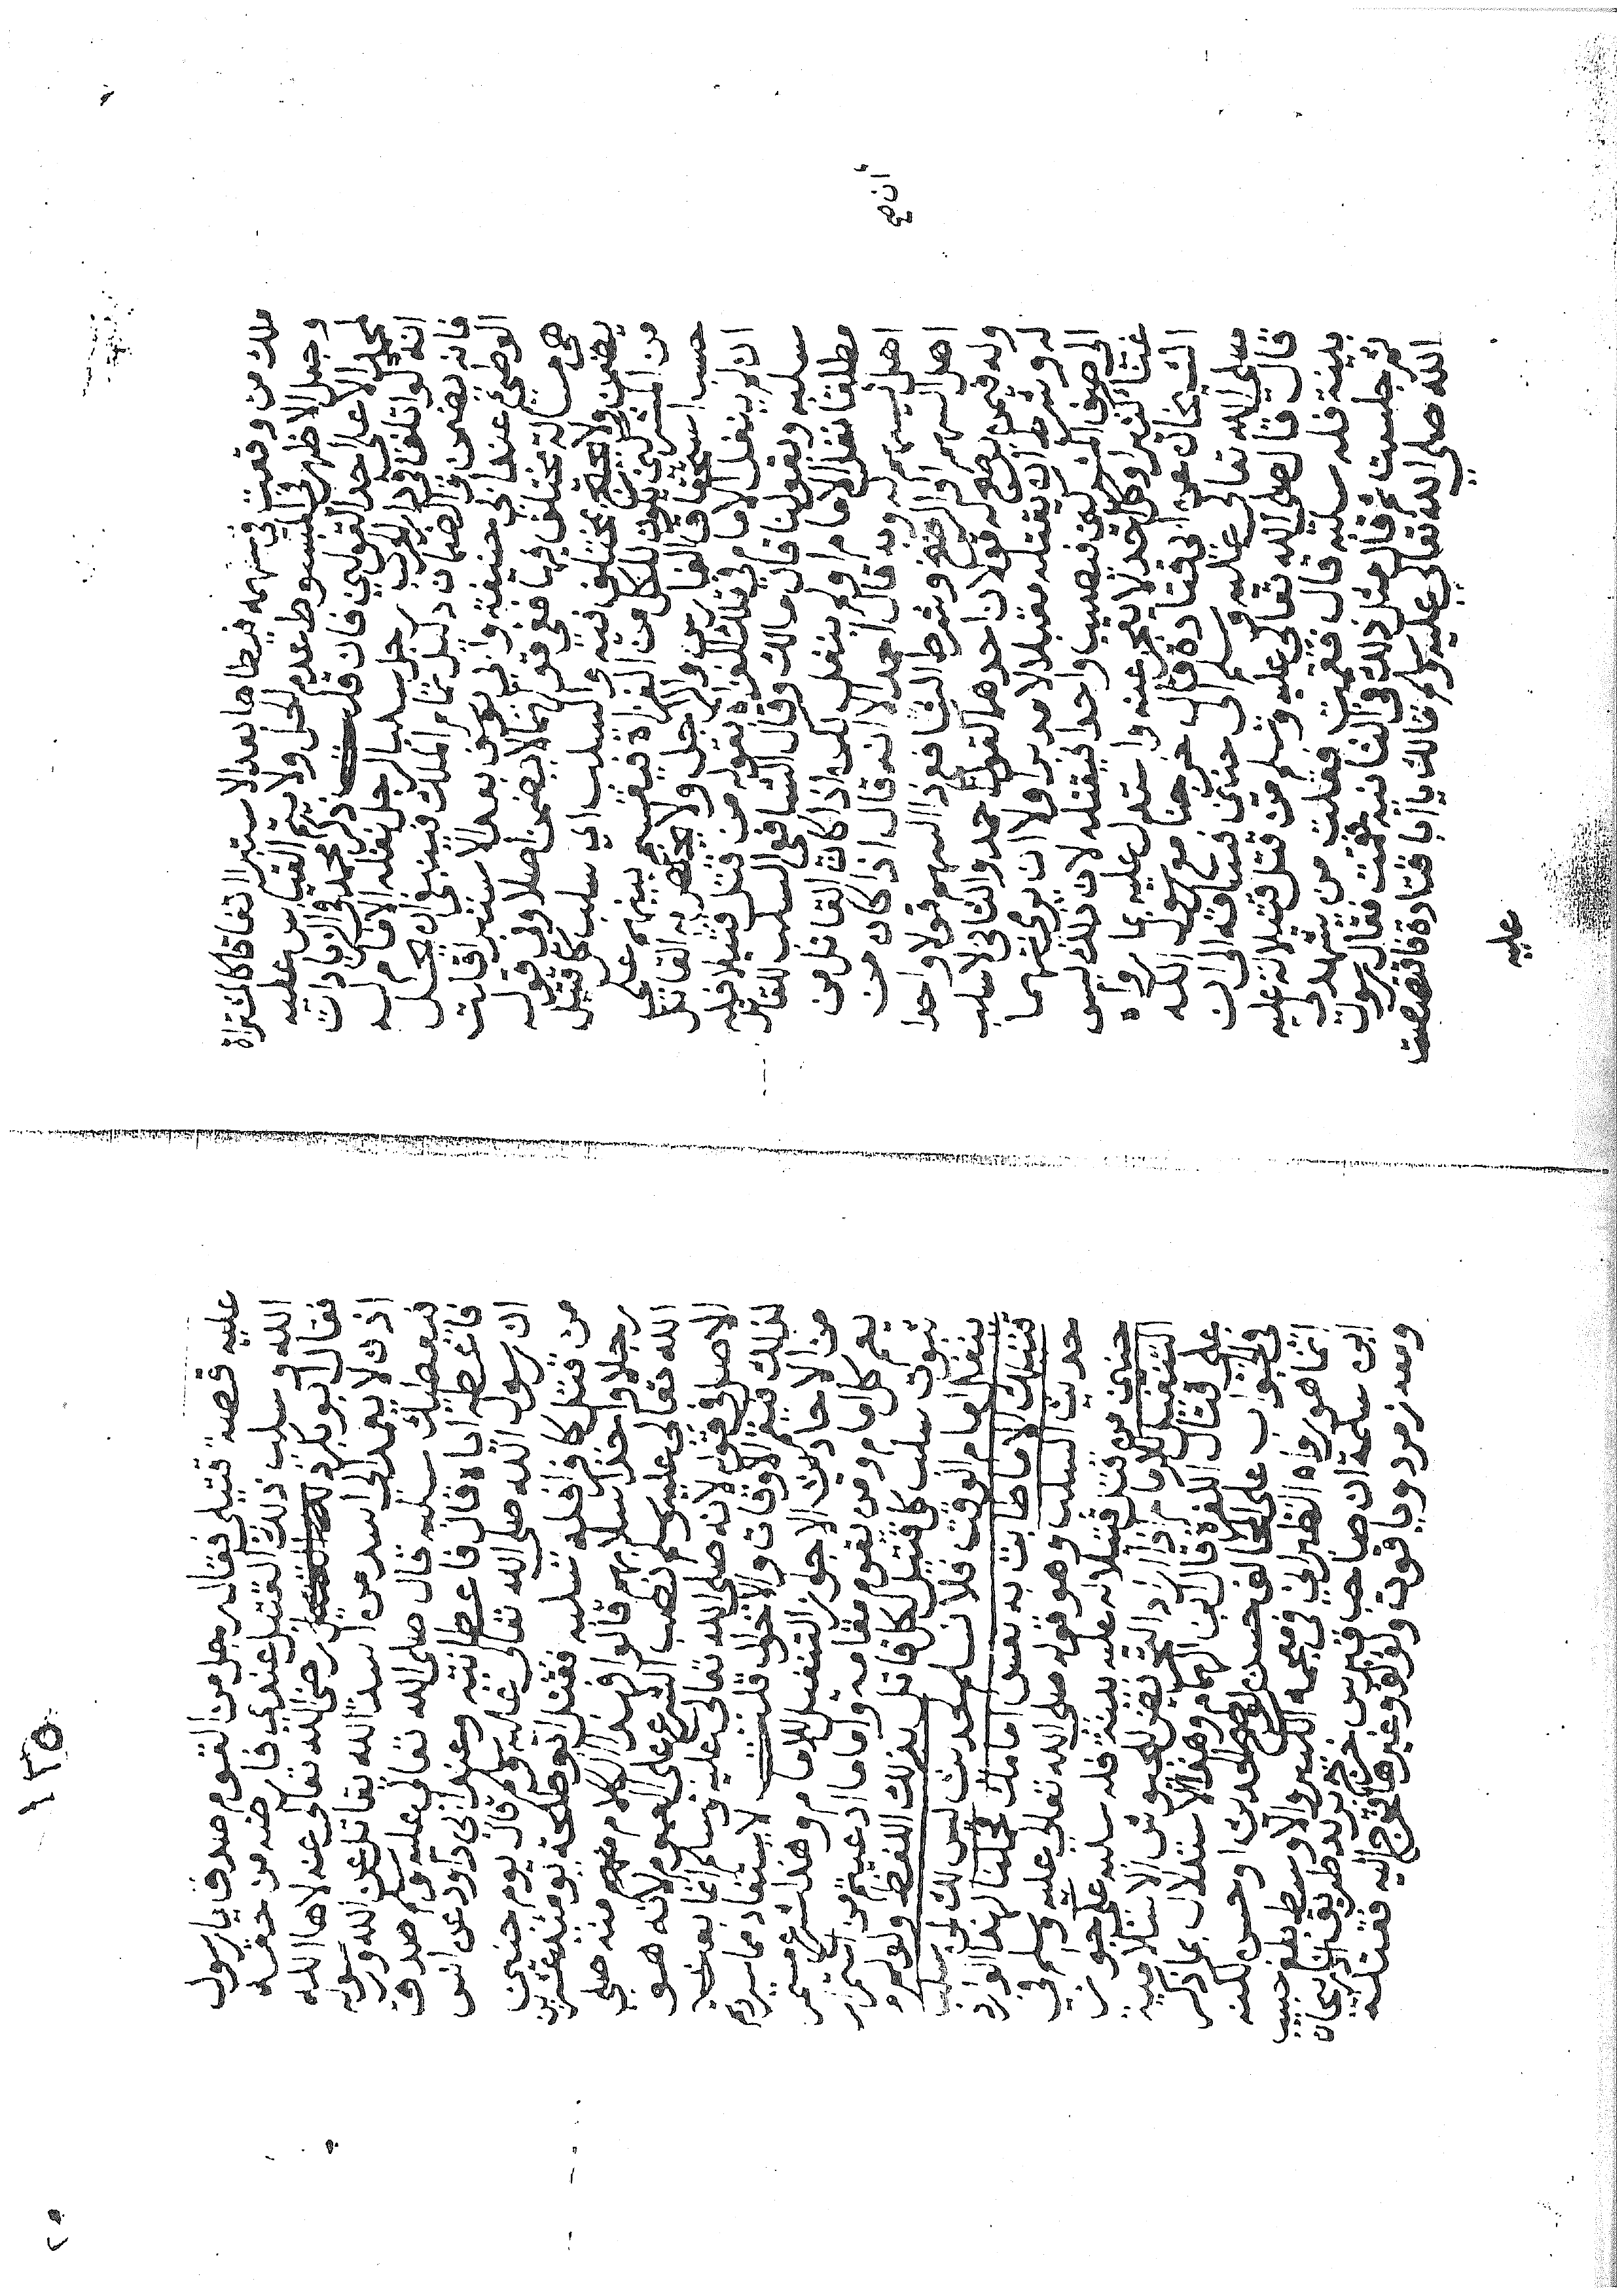 ملك من وقعت في سهمه فيطاها بعد الاستبرا اتفاقا كالمشتراة
وجعل الاظهر في المبسوط عدم الحل ولا يتم القياس عليه
لمحمد الا على احد القولين فان قلت ذكر محمد في الزيادات
انه لو اتلف في دار الحرب رجل سلب الرجل نفله الامام له
فانه يضمن والضمان دليل تمام الملك فينبغي ان يحل
الوطئ عند ابي حنيفة وابي يوسف بعد الاستبرا قلت
هي مسالة مختلف فيها ففي قولهما لا يضمن اصلا وفي قوله
يضمن ولا يحتج بمختلف فيه والسلب اي سلب كل قتيل
من المشركين يكون للكل من الغزاة فيقسم بينهم على
حسب استحقاق الفارس والراجل ولا يختص به القاتل
ان لم ينفل الامام في تلك الغزاة بقوله من قتل قتيلا فله
سلبه وبقولنا قال مالك وقال الشافعي السلب للقاتل
مطلقا نفل الامام او لم ينفل لكن اذا كان القاتل من
اهل ان يسهم له وبه قال احمد الا انه قال اذا كان من
اهل السهم او الرضخ وشرط الشافعي ذا السهم قولا واحدا
وله فيمن يرضخ له قولان احدهما كقول احمد والثاني لا سلب
له وشرط ان يقتله مقبلا لا مدبرا ولا ان يرمي سهما
الى صف المشركين فيصيب واحدا فيقتله لان ذلك ليس
غناء كثيرا وكل احد لا يعجز عنه واستدل عليه بما رواه
الشيخان عن ابي قتادة قال خرجنا مع رسول الله
صلى الله تعالى عليه وسلم الى حنين فساقه الى ان
قال فقال صلى الله تعالى عليه وسلم من قتل قتيلا له عليه
بينة فله سلبه قال فقمت فقلت من يشهد لي
ثم جلست ثم قال مثل ذلك في الثانية فقمت فقال رسول
الله صلى الله تعالى عليه وسلم مالك يا ابا قتادة فاقتصصت
عليه
ان صح
١٣٥
عليه قصة قتيلي فقال رجل من القوم صدق يا رسول
الله وسلب ذلك القتيل عندي فارضه من حقه
فقال ابو بكر الصديق رضي الله تعالى عنه لاها الله
اذن لا يعمد الى اسد من اسد الله يقاتل عن الله ورسوله
فنعطيك سلبه قال صلى الله تعالى عليه وسلم صدق
فاعطه اياه قال فاعطانيه وعند ابي داود عن انس
ان رسول الله صلى الله تعالى عليه وسلم قال يوم حنين
من قتل كافرا فله سلبه فقتل ابو طلحة يومئذ عشرين
رجلا واخذ اسلابهم قالوا وهذا الكلام منه صلى
الله تعالى عليه وسلم نصب الشرع على العموم لانه هو
الاصل في قوله لانه صلى الله تعالى عليه وسلم انما بعث
لذلك فيعم الاوقات والاحوال قلت لا يستفاد مما سردتم
من الاحاديث الا جواز التنفيل للامام وهذا شرع مستمر
يعم كل امام ومن يقوم مقامه واما ما ادعيتم من استمرار
ثبوت سلب كل قتيل لكل قاتل بذلك اللفظ ولو لم
ينفل امام الوقت فلا نسلم لحديث ليس لك من سلب
قتيلك الا ما طابت به نفس امامك حملنا لهذا الوارد
حديث السلب وهو قوله صلى الله تعالى عليه وسلم في
حنين من قتل قتيلا له عليه بينة فله سلبه على جواز
التنفيل للامام اذا اراد التحريض للجيوش الاسلامية
على قتال الكفرة قال ابن الهمام وهذا الاستدلال بما ذكر
في الجواب على المخالف حسن لو صح الحديث او حسن لكنه
انما هو رواه الطبراني في معجمه الكبير والاوسط بلغ حبيب
ابن سلمة ان صاحب قبرس خرج يريد طريق اذربيجان
ومعه زمرد وياقوت ولولو وغيرها فخرج اليه فقتله
٢٥